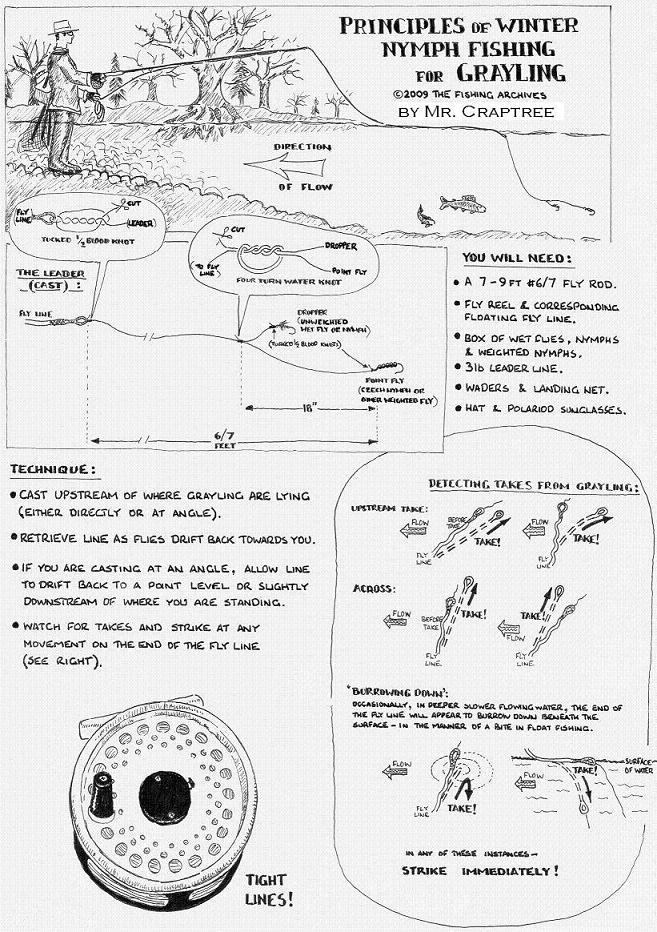 PRINCIPLES OF WINTER
NYMPH FISHING
FOR GRAYLING
©2009 THE FISHING ARCHIVES
BY MR. CRAPTREE
DIRECTION
OF FLOW
CUT
FLY
LINE
(LEADER)
TUCKED ½ BLOOD KNOT
CUT
DROPPER
(TO FLY
LINE)
POINT FLY
FOUR TURN WATER KNOT
THE LEADER
(CAST):
FLY LINE
DROPPER
(UNWEIGHTED
WET FLY OR NYMPH)
(TUCKED ½ BLOOD KNOTS)
POINT FLY
(CZECH NYMPH OR
OTHER WEIGHTED FLY)
18"
6/7
FEET
YOU WILL NEED:
• A 7-9FT #6/7 FLY ROD.
• FLY REEL & CORRESPONDING
FLOATING FLY LINE.
• BOX OF WET FLIES, NYMPHS
& WEIGHTED NYMPHS.
• 3lb LEADER LINE.
• WADERS & LANDING NET.
• HAT & POLARIOD SUNGLASSES.
TECHNIQUE:
• CAST UPSTREAM OF WHERE GRAYLING ARE LYING
(EITHER DIRECTLY OR AT ANGLE).
• RETRIEVE LINE AS FLIES DRIFT BACK TOWARDS YOU.
• IF YOU ARE CASTING AT AN ANGLE, ALLOW LINE
TO DRIFT BACK TO A POINT LEVEL OR SLIGHTLY
DOWNSTREAM OF WHERE YOU ARE STANDING.
• WATCH FOR TAKES AND STRIKE AT ANY
MOVEMENT ON THE END OF THE FLY LINE
(SEE RIGHT).
TIGHT
LINES!
DETECTING TAKES FROM GRAYLING:
UPSTREAM TAKE:
FLOW
BEFORE
TAKE
TAKE!
FLY
LINE
FLOW
TAKE!
FLY
LINE
ACROSS:
FLOW
BEFORE
TAKE
TAKE!
FLY
LINE
TAKE!
FLOW
FLY
LINE
'BURROWING DOWN':
OCCASIONALLY, IN DEEPER SLOWER FLOWING WATER, THE END OF
THE FLY LINE WILL APPEAR TO BURROW DOWN BENEATH THE
SURFACE - IN THE MANNER OF A BITE IN FLOAT FISHING.
FLOW
FLY
LINE
TAKE!
FLOW
TAKE!
SURFACE
OF WATER
IN ANY OF THESE INSTANCES -
STRIKE IMMEDIATELY!